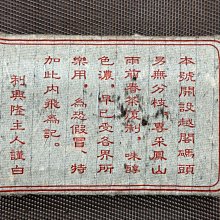 本號開設越閣碼頭
易無分枝專采鳳山
雨前春茶複制味醇
色濃早已受各界所
樂用為恐假冒特
加此內飛為記
利興隆主人謹白